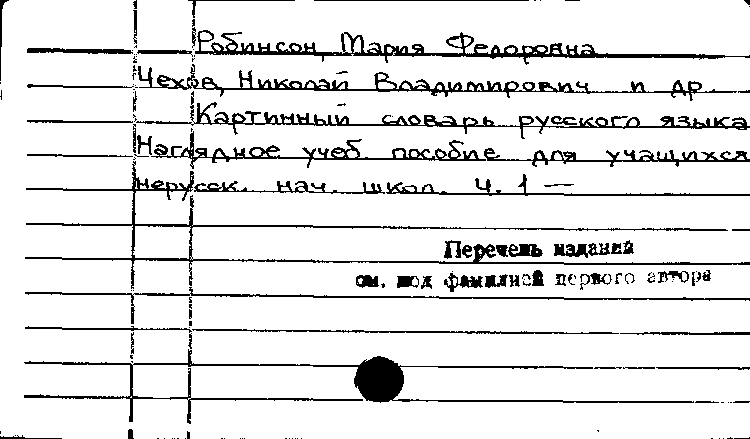 Робинсон, Мария Федоровна
Чехов, Николай Владимирович и др.
Картинный словарь русского языка
Наглядное учеб. пособие для учащихся
нерусск. нач. школ. Ч. 1 —
Перечень изданий
см. под фамилией первого автора